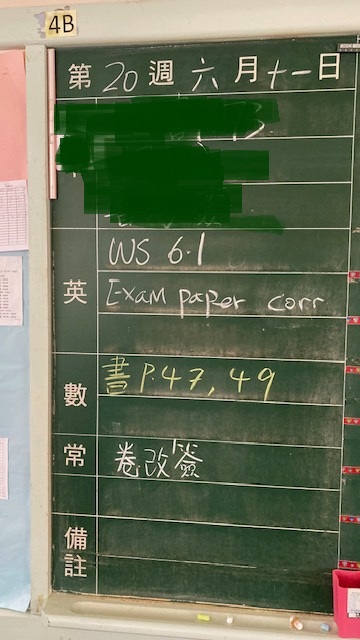 4B
第20週六月十一日
WS 6.1
英 Exam paper corr
數 書P.47, 49
常 卷改簽
備註